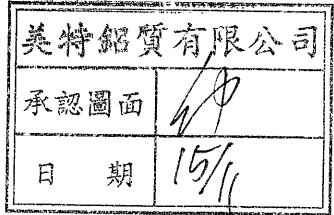 美特鋁質有限公司
承認圖面
日期 15/11